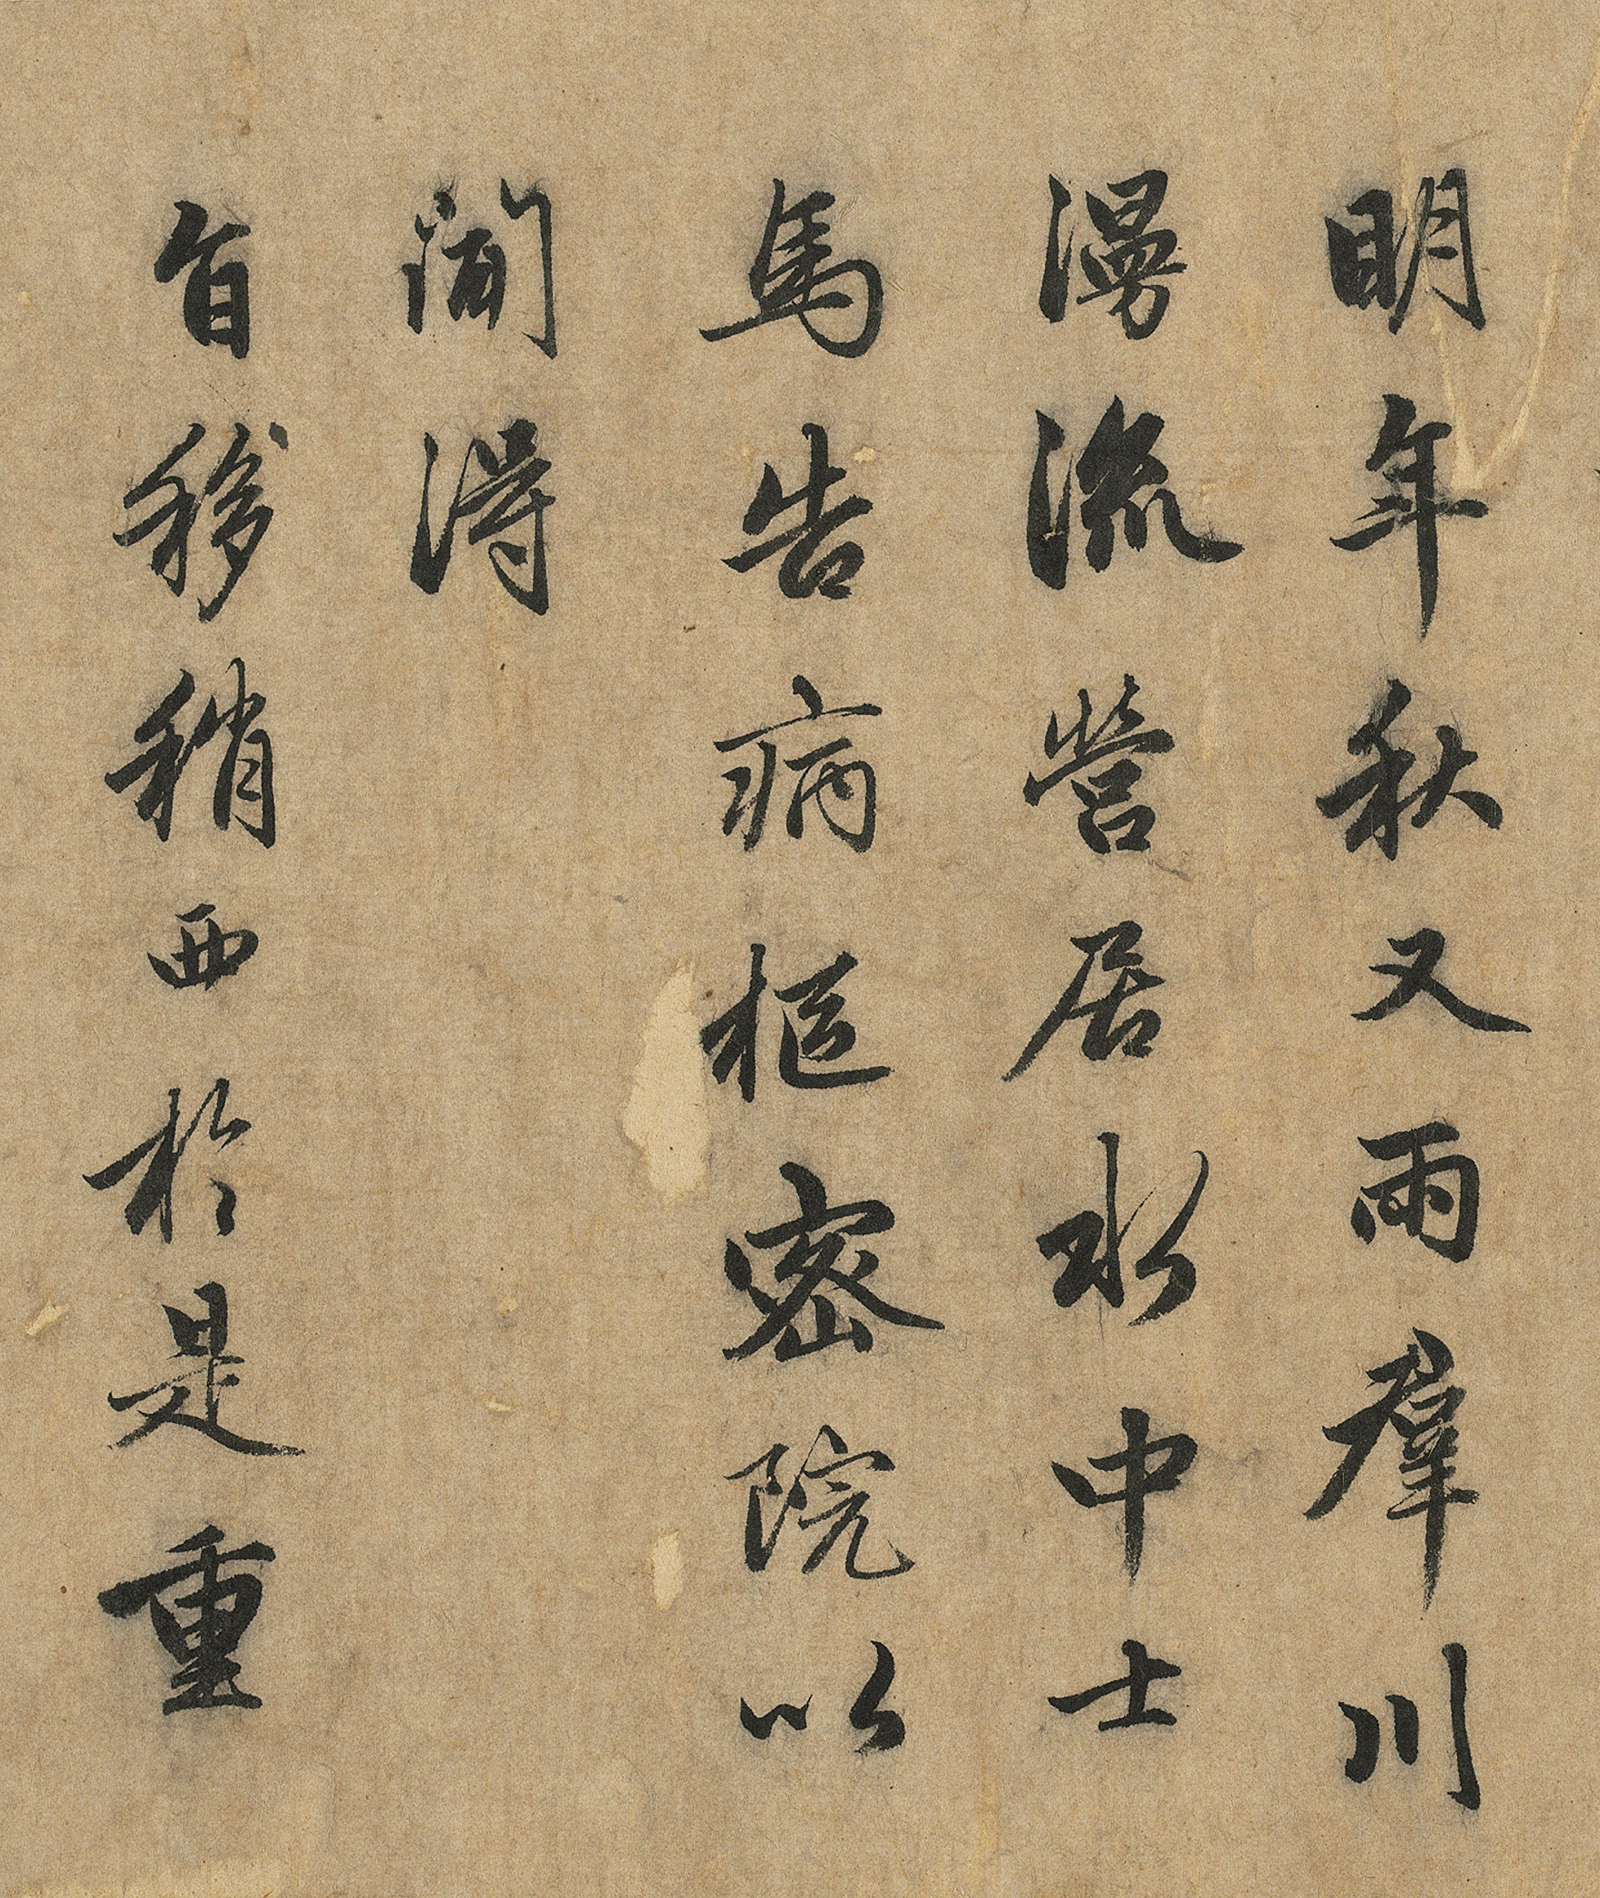 明年秋又雨羣川
漫流營居水中士
馬告病樞密院以
聞得
旨移稍西於是重